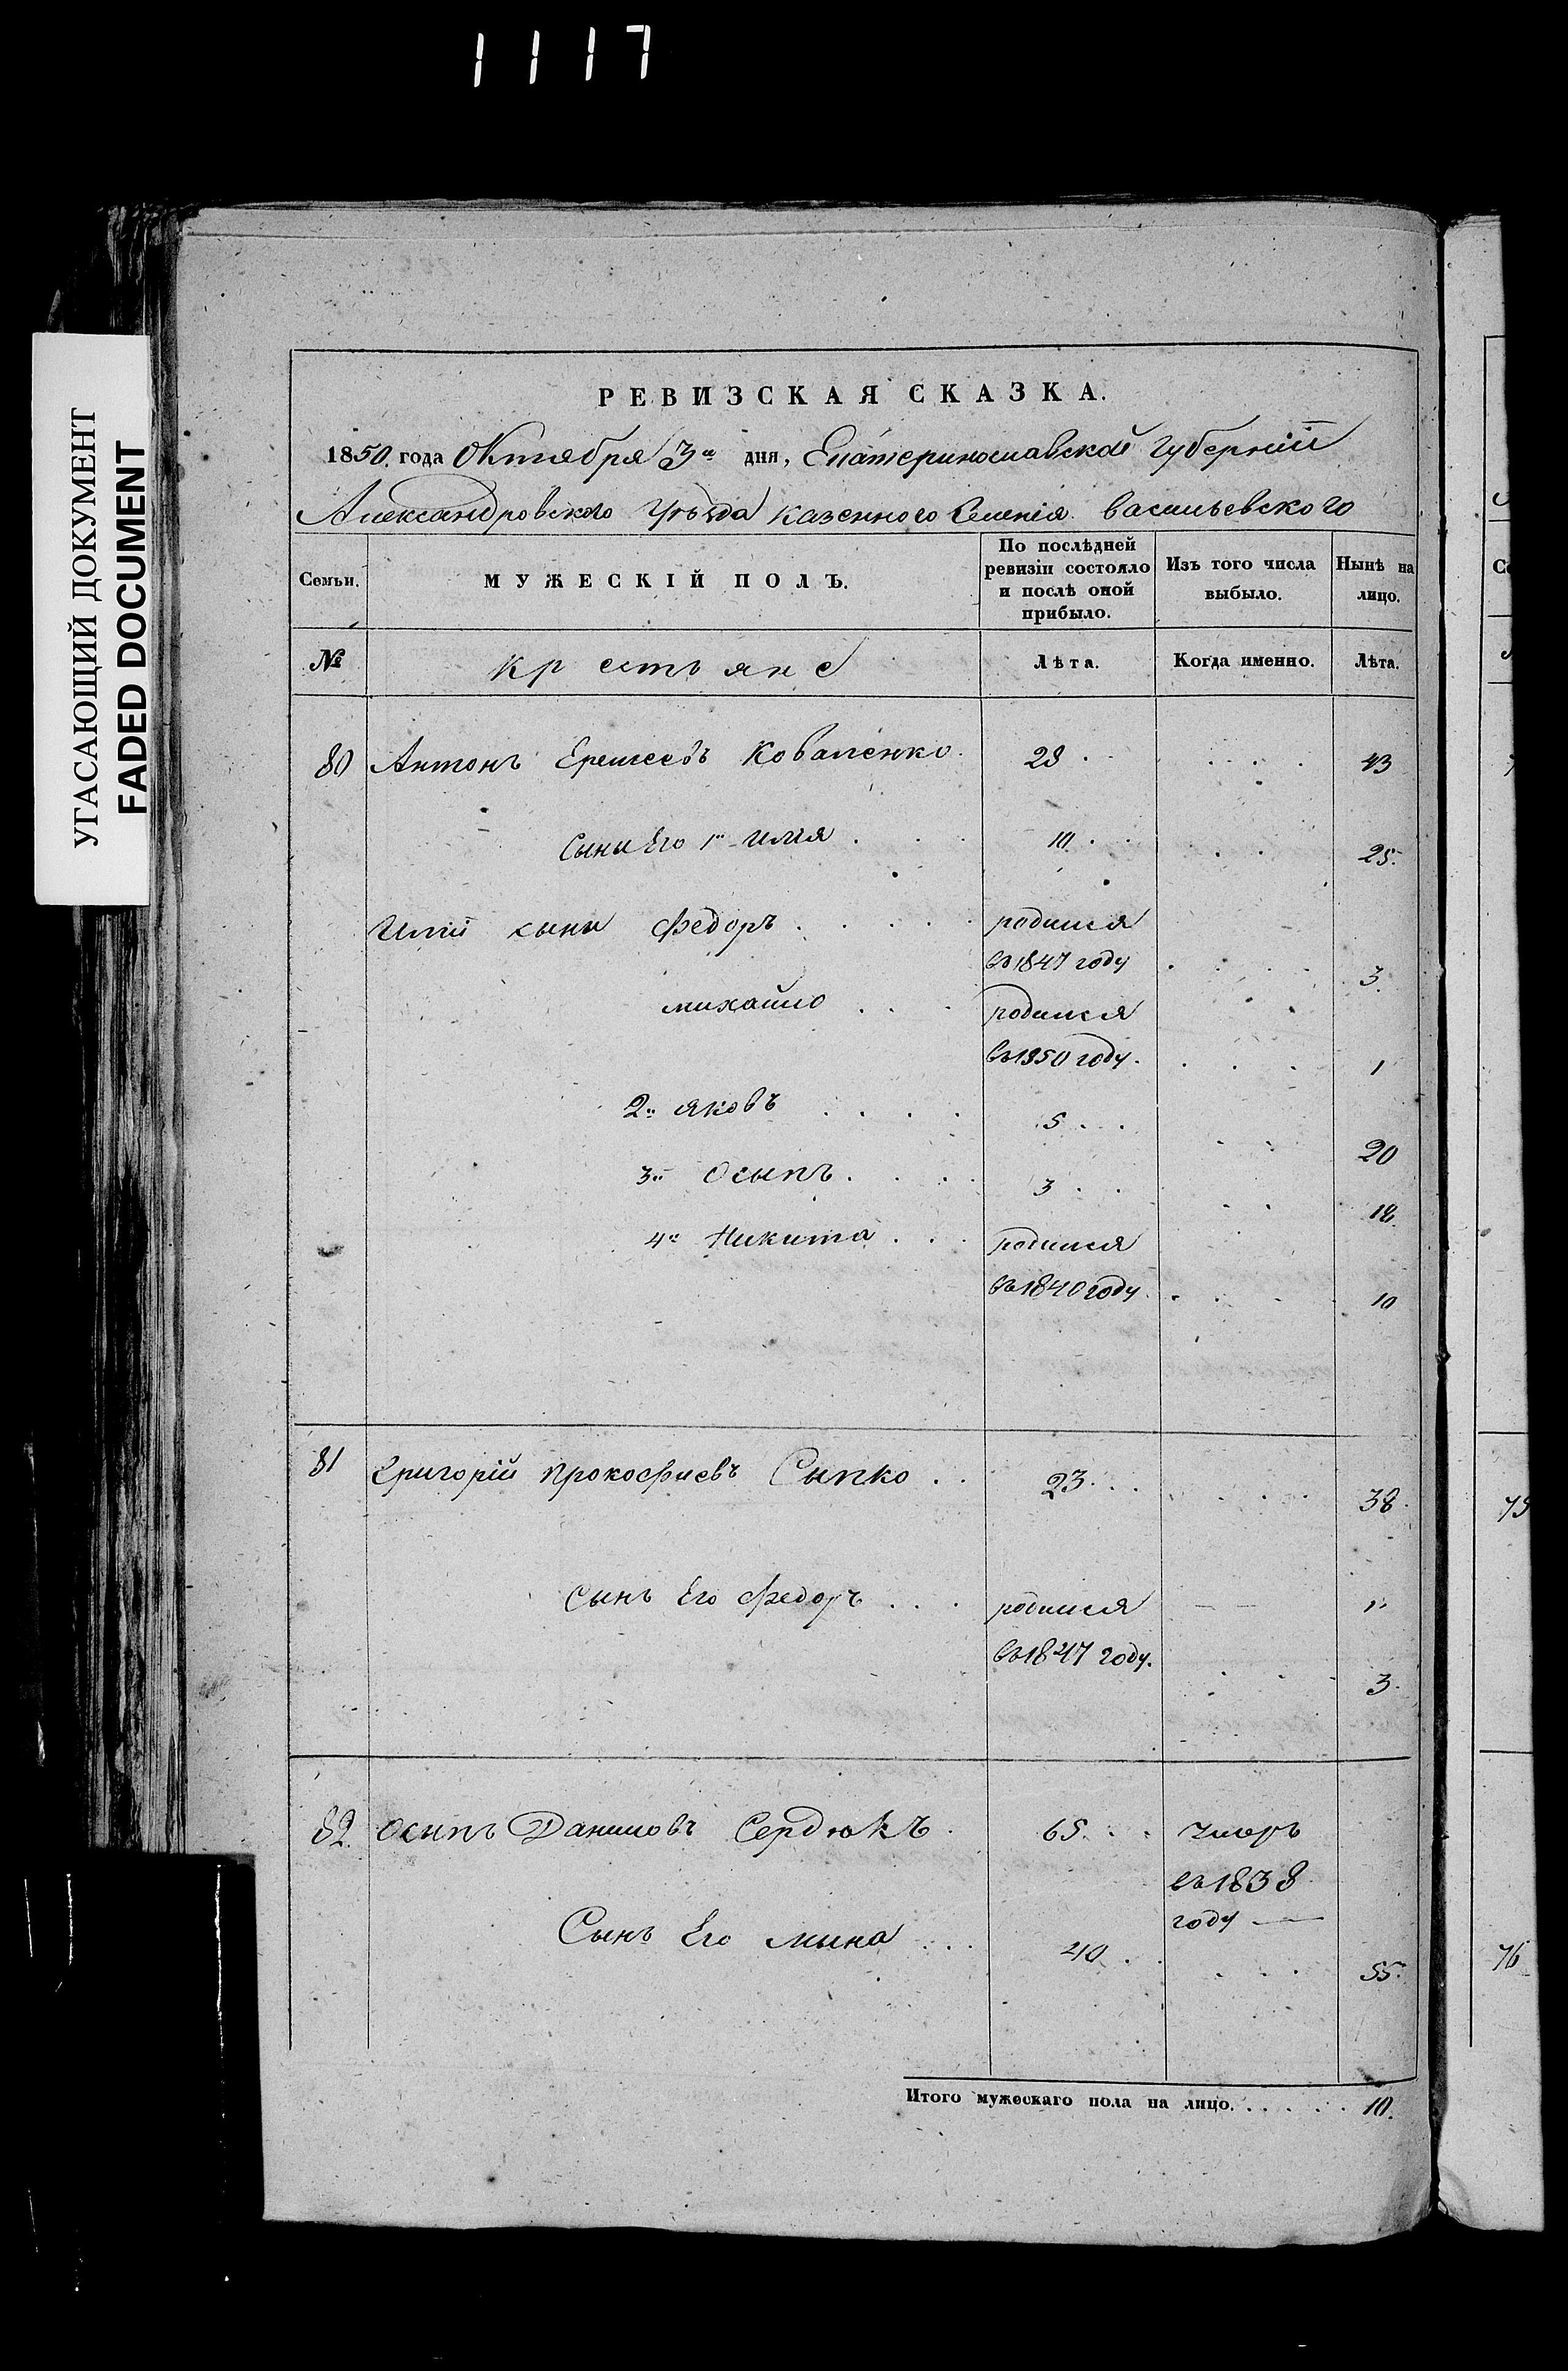 1117
УГАСАЮЩИЙ ДОКУМЕНТ
FADED DOCUMENT
РЕВИЗСКАЯ СКАЗКА.
1850. года Октября 3го дня, Екатеринославской губернии
Александровского Уѣзда казенного Селенія васильевского
Семьи. МУЖЕСКІЙ ПОЛЪ. По послѣдней ревизіи состояло и послѣ оной прибыло. Изъ того числа выбыло. Нынѣ на лицо.
№ крестьяне Лѣта. Когда именно. Лѣта.
80 Антонъ Еремеевъ Коваленко 28 43
Сыны Его 1й Илія 10 25.
Иліи сыны Федоръ родился
въ 1847 году 3.
михайло родился
въ 1850 году. 1
2й яковъ 5 20
3й Осыпъ 3 18
4й Никита родился
въ 1840 году 10
81 Григорій Прокофиевъ Сыпко 23 38.
Сынъ Его Федоръ родился
въ 1847 году. 3.
82 Осыпъ Даниловъ Сердюкъ 65. Умеръ
въ 1838
году
Сынъ Его мина 40 55.
Итого мужескаго пола на лицо. 10.